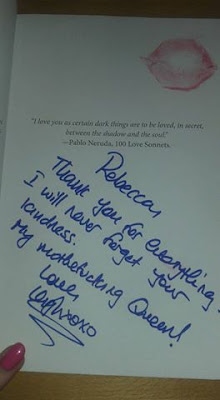 "I love you as certain dark things are to be loved, in secret,
between the shadow and the soul."
—Pablo Neruda, 100 Love Sonnets.
Rebecca
Thank you for everything.
I will never forget your
kindness.
My mothefucking Queen!
Love
xoxo